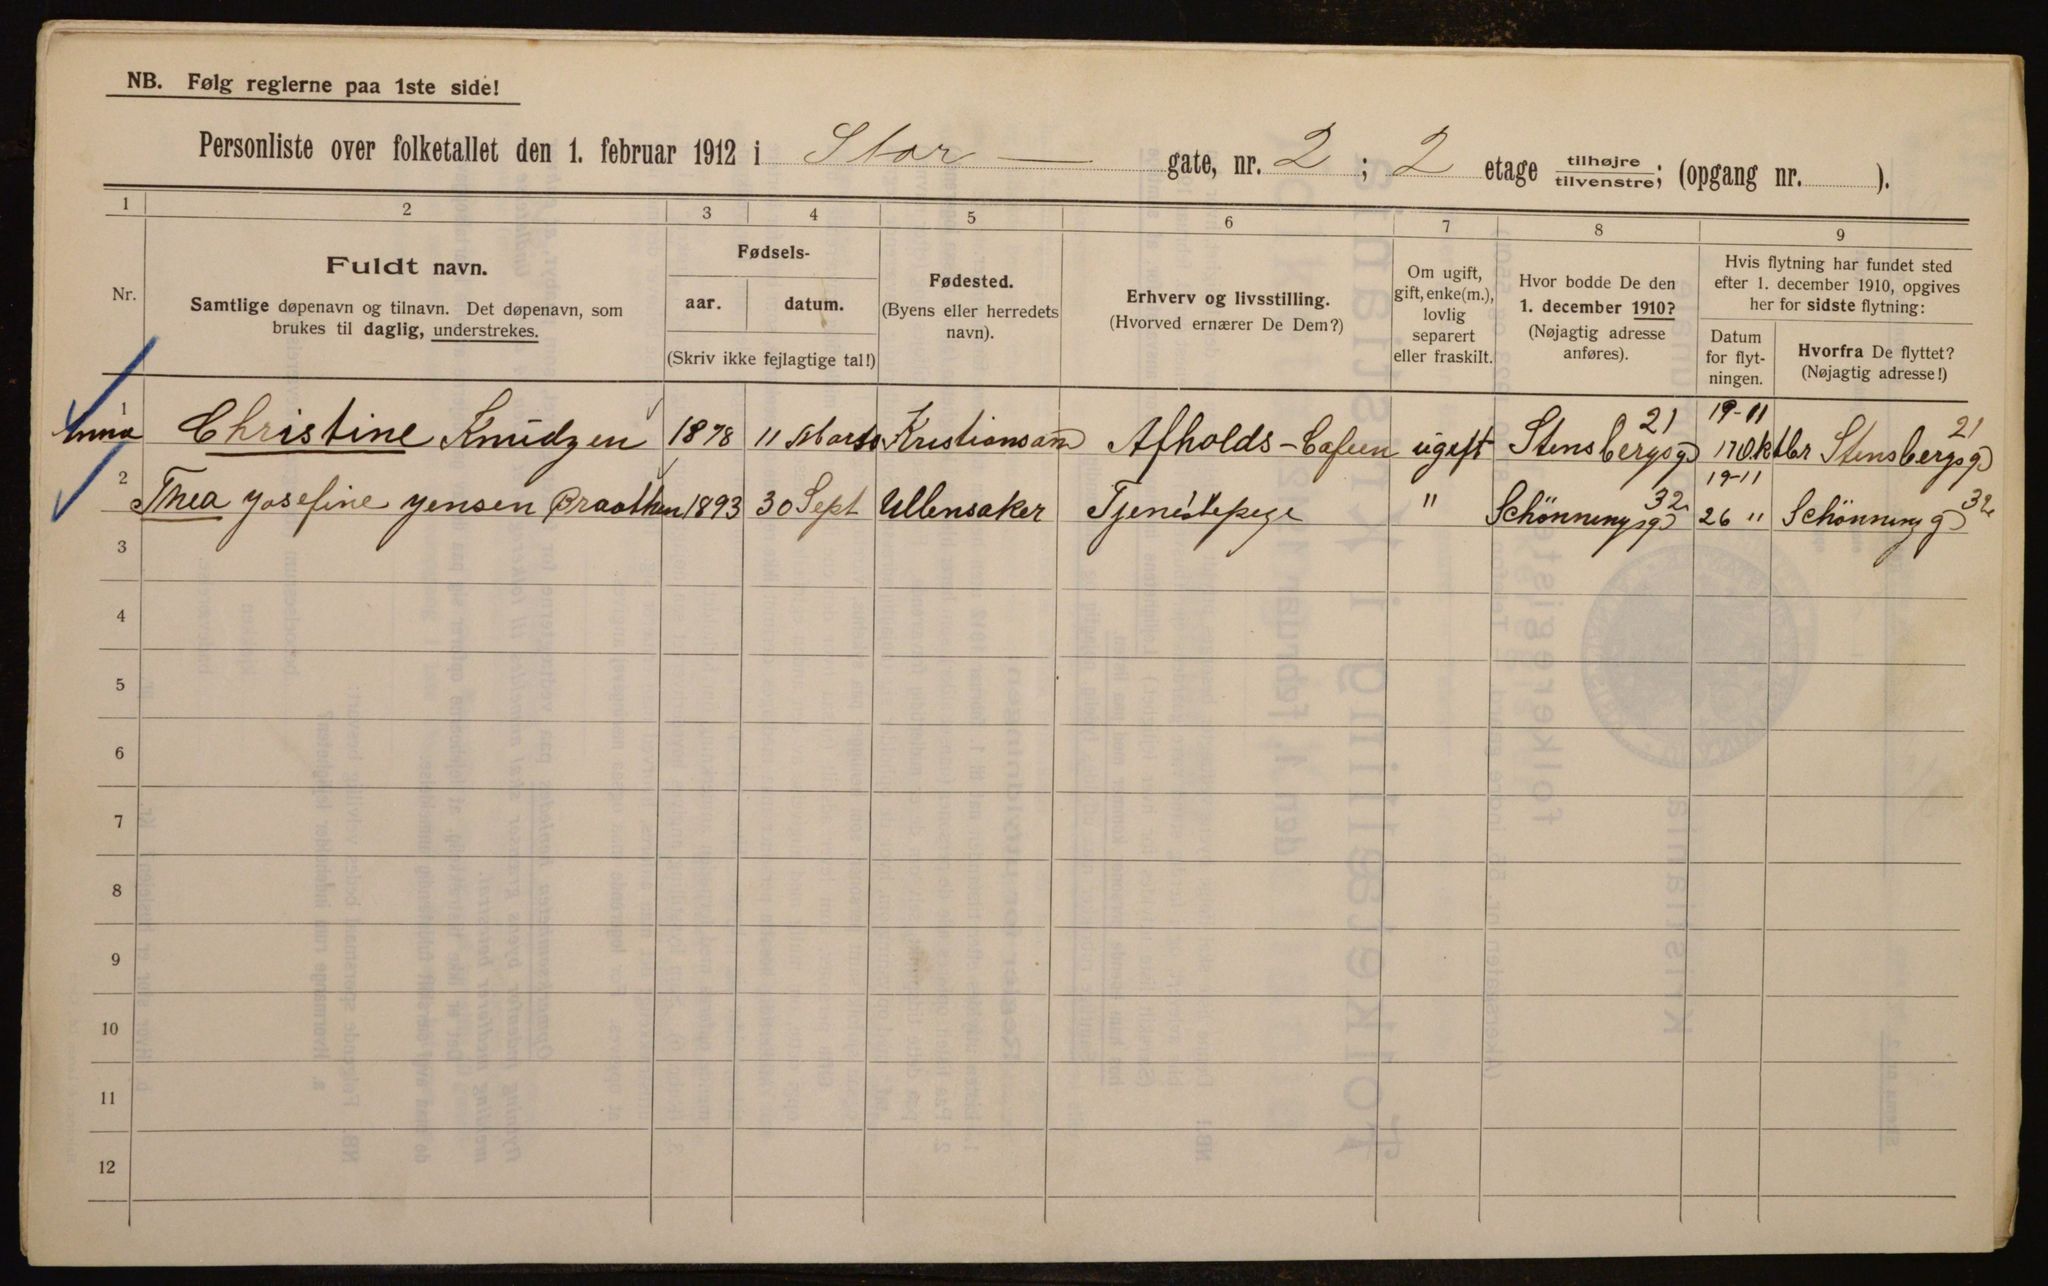 NB. Følg reglerne paa 1ste side!
Personliste over folketallet den 1. februar 1912 i Stor — gate, nr. 2 ; 2 etage tilhøjre/tilvenstre; (opgang nr. ).
1 2 3 4 5 6 7 8 9
Nr.
Fuldt navn.
Samtlige døpenavn og tilnavn. Det døpenavn, som
brukes til daglig, understrekes.
Fødsels-
aar. datum.
(Skriv ikke fejlagtige tal!)
Fødested.
(Byens eller herredets
navn).
Erhverv og livsstilling.
(Hvorved ernærer De Dem?)
Om ugift,
gift, enke(m.),
lovlig
separert
eller fraskilt.
Hvor bodde De den
1. december 1910?
(Nøjagtig adresse
anføres).
Hvis flytning har fundet sted
efter 1. december 1910, opgives
her for sidste flytning:
Datum
for flyt-
ningen.
Hvorfra De flyttet?
(Nøjagtig adresse!)
1 Anna Christine Knudzen 1878 11 Marts Kristiansam Afholds-Cafeen ugift Stensbergsg 21 19-11 17 Oktbr Stensbergsg 21
2 Thea Josefine Jensen Braathen 1893 30 Sept Ullensaker Tjenestepige " Schönningsg 32 19-11 26 " Schönning g 32
3
4
5
6
7
8
9
10
11
12